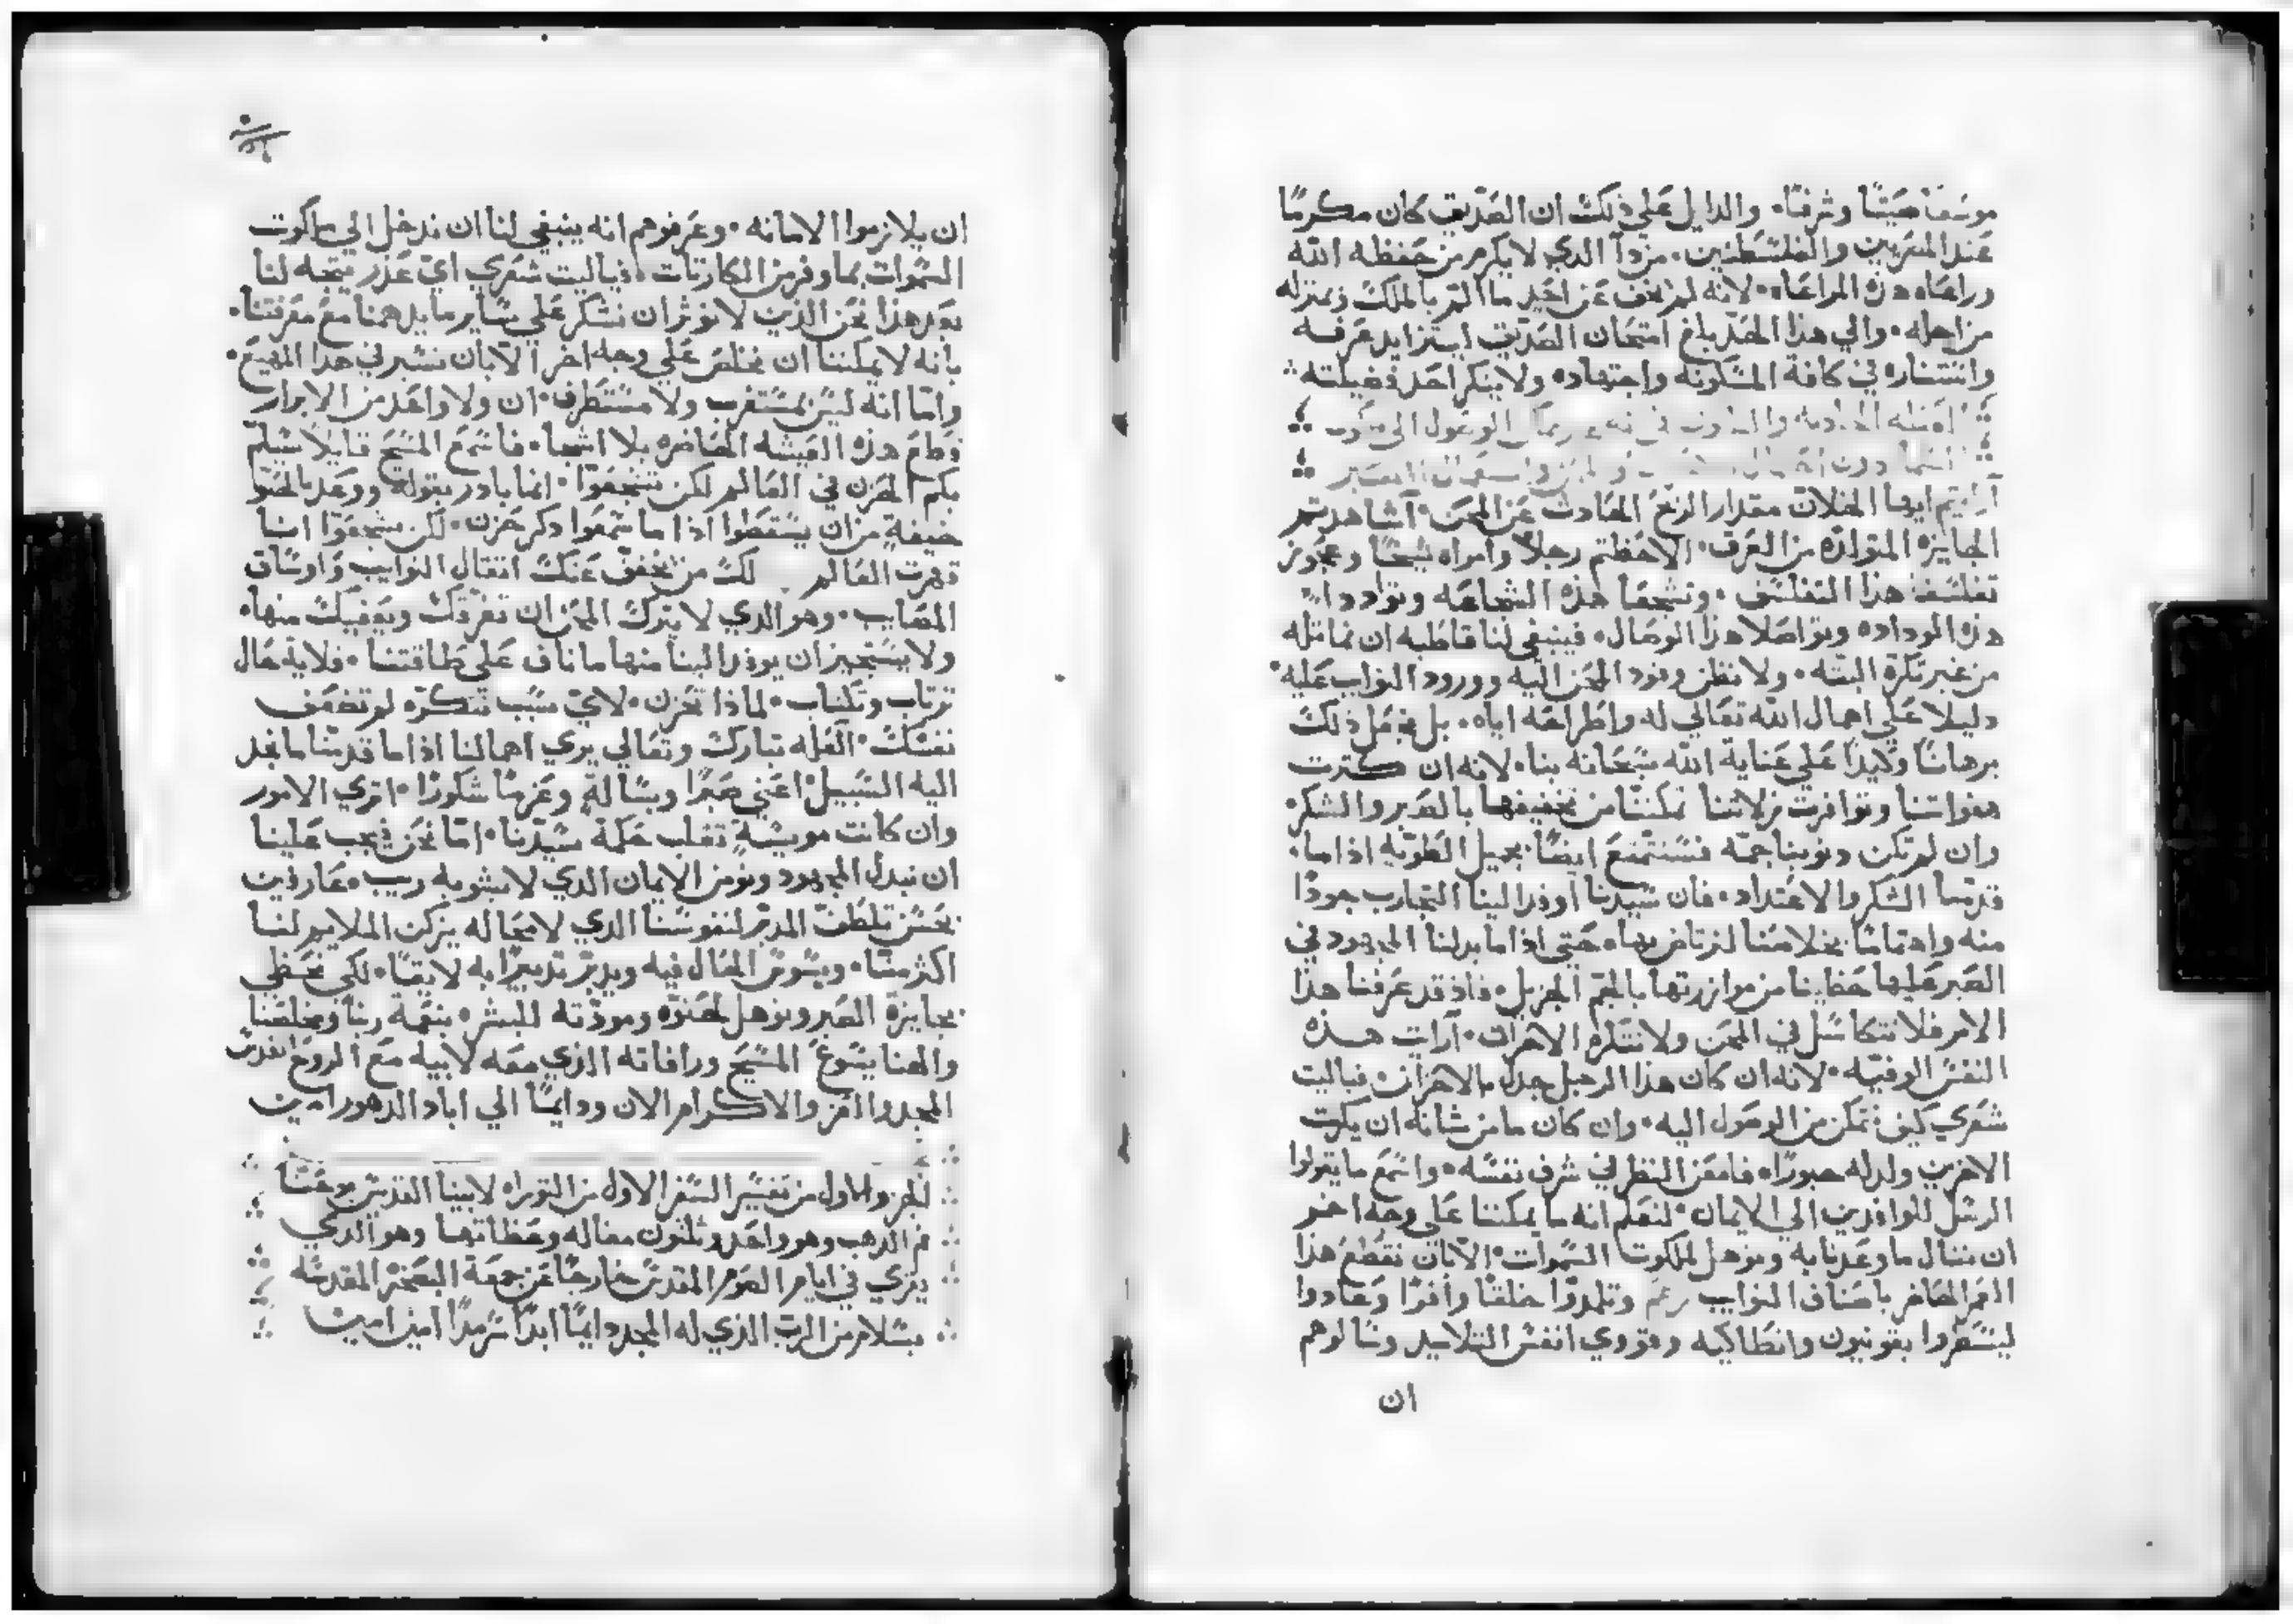 موسعا صيتا وشرفا. والدليل علي ذلك ان الصديق كان مكرما
عند المصريين والفلسطنين. من ذا الدي لا يكرم من حفظه الله
وراعاه هذه المراعاه. لانه لم يخف عن احد ما الم بالملك وبمنزله
من اجله. والي هذا الحد بلغ امتحان الصديق ابتزايد عرفه
وانتشاره في كافة المسكونه واجتهاده ولا ينكر احد فضيلته
العظه الحاديه والثلاثون في انه لا يمكن الوصول الى ملكوت
ارايتم ايها الخلان مقدار الربح الحادث عن المحن. اشاهدتم
الجايزه المتواتره من العرف. الاحظتم رجلا وامراه شيخا وعجوز
تفلسفا هذا التفلسف. وتشجعا هذه الشجاعه وتواددا
هذه الموداده وتواصلا هذا الوصال. فينبغي لنا قاطبه ان نماثله
من غير تكره البته. ولا نظن وفود المحن اليه وورود النوايب عليه
دليلا علي اهمال الله تعالي له واطراحه اياه. بل نجعل ذلك
برهانا وكيدا علي عناية الله سبحانه بنا. لانه ان كترت
هفواتنا وتوافرت زلاتنا تمكننا من تخفيفها بالصبر والشكر
وان لم تكن دنوبنا جمه فسنتمتع ايضا بجميل الطوبه اذا ما
قدمنا الشكر والاعتداد. فان سيدنا اوفد الينا التجارب جودا
منه واهتماما بخلاصنا لنرتاض بها. حتى اذا ما بدلنا المجهود في
الصبر عليها حظينا من موازرتها بالجم الجزيل. فاذ قد عرفنا هذا
الامر فلا نتكاسل في المحن ولا نتكره الاحزان. ارايت هذه
النفس الوفيه. لانه ان كان هذا الرجل جدل بالاحزان. فياليت
شعري كيف تمكن من الوصول اليه. وان كان ما من شانه ان يكرت
الاخرين ولد له حبورا. فامعن النظر في شرف نفسه. واسمع ما يقولوا
الرسل للوافدين الي الايمان. لنعلم انه ما يمكننا علي وجه اخر
ان ننال ما وعدنا به ونوهل لملكوت السموات. الا بان نقطع هذا
العمر الحاضر باصناف النوايب زعم وتلمذوا خلقا وافرا وعادوا
ليسفروا بقونيون وانطاكيه وتقوي انفس التلاميد وسالوهم
ان
ان يلازموا الامانه. وعرفوهم انه ينبغي لنا ان ندخل الي ملكوت
السموات بما وفر من الكارثات. فياليت شعري اي عذر يتجه لنا
بعد هذا نحن الذين لا نوثر ان نشكر علي ساير ما يدهمنا مع معرفتنا
بانه لا يمكننا ان نخلص علي وجه اخر الا بان نسير في هدا المهيع
واما انه ليس بمستغرب ولا مستطرف. ان ولا واحد من الابرار
قطع هذه العيشه الحاضره بلا اشجا. فاسمع المسيح قايلا سيلم
بكم الحزن في العالم لكن تشجعوا. انما بادر بقوله ووعد بالصوا
خيفة من ان يسقطوا اذا ما سمعوا دكر حزن. لكن تشجعوا انا
قهرت العالم لك من يخفف عنك اثقال النوايب واوساق
المصايب. وهو الدي لا يترك المحن ان تغرقك ويوفيك منها
ولا يستجيز ان يوفد الينا منها ما ناف علي طاقتنا. فلاية حال
ترتاب وتكتاب. لماذا تحزن. لاي سبب تتكره لم تضعف
نفسك. العله تبارك وتعالي يري اهمالنا اذا ما قدمنا ما نجد
اليه السبيل. اعني صبرا وبسالة وعزما شكورا. اتري الامور
وان كانت مويسة تغلب حكمة سيدنا. اما نحن فيجب علينا
ان نبدل المجهود ونومن الايمان الدي لا يشوبه ريب. عارفين
بحسن تلطف المدبر لنفوسنا الدي لا محاله يزكن الملايم لنا
اكثر منا. ويسوس الحال فيه ويدبر تدبيرا به لايقا. لكي نحظي
بجايزة الصبر ونوهل لحنوه ومودته للبشر. بنعمة ربنا ومخلصنا
والهنا يسوع المسيح ورافاته الذي معه لابيه مع الروح القدس
المجد والعز والاكرام الان ودايما الي اباد الدهور امين
الجزو الاول من تفسير السفر الاول من التوراه لابينا القديس يوحنا
فم الدهب وهو واحد وثلثون مقاله وعظاتها وهو الدي
يقري في ايام الصوم المقدس خارجا عن جمعة البصخة المقدسه
بسلام من الرب الذي له المجد دايما ابدا سرمدا امين امين